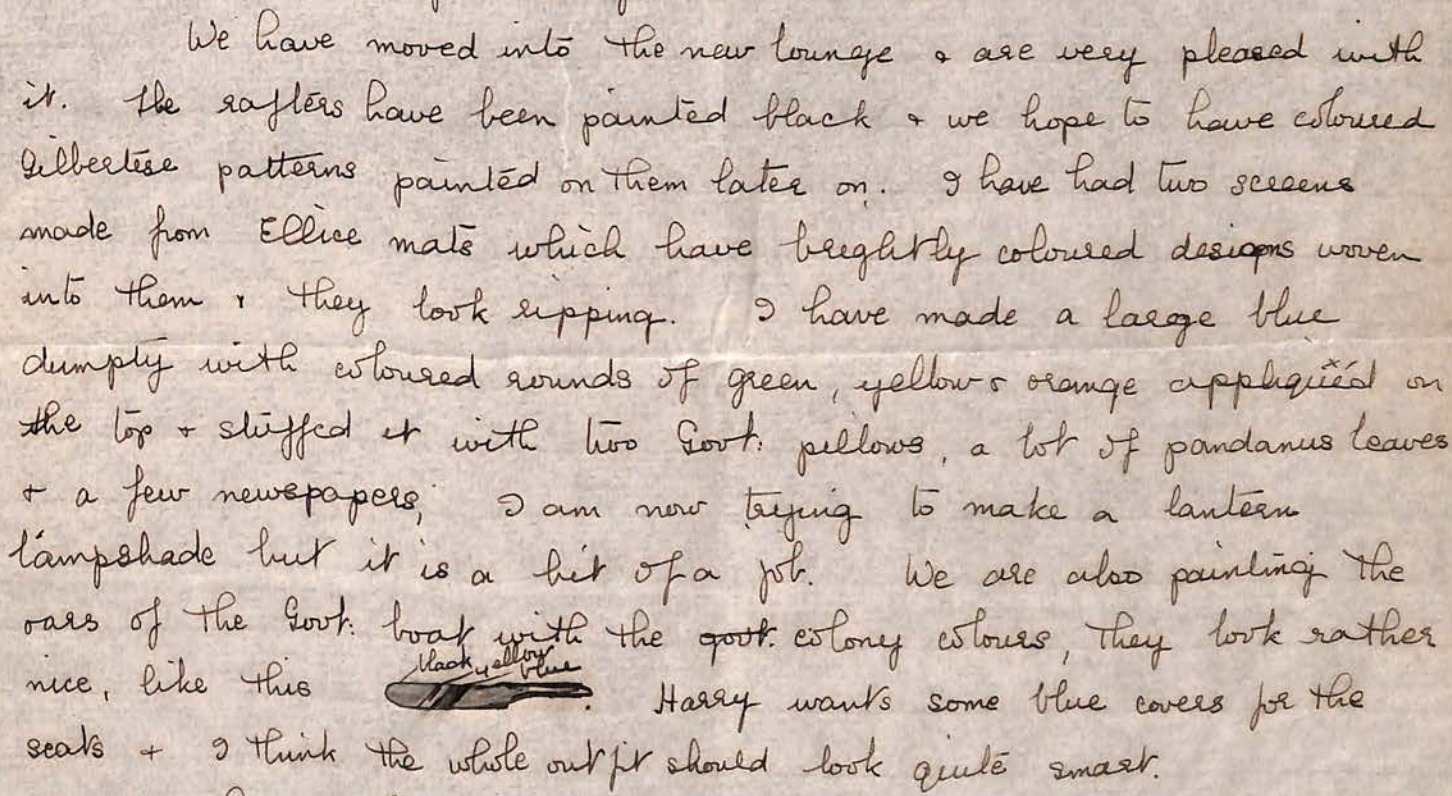 We have moved into the new lounge & are very pleased with
it. The rafters have been painted black & we hope to have coloured
Gilbertese patterns painted on them later on. I have had two screens
made from Ellice mats which have brightly coloured designs woven
into them & they look ripping. I have made a large blue
dumpty with coloured rounds of green, yellow & orange appliquéd on
the top & stuffed it with two Govt: pillows, a lot of pandanus leaves
& a few newspapers; I am now trying to make a lantern
lampshade but it is a bit of a job. We are also painting the
oars of the Govt: boat with the govt. colony colours, they look rather
black yellow
blue
nice, like this . Harry wants some blue covers for the
seats & I think the whole outfit should look quite smart.